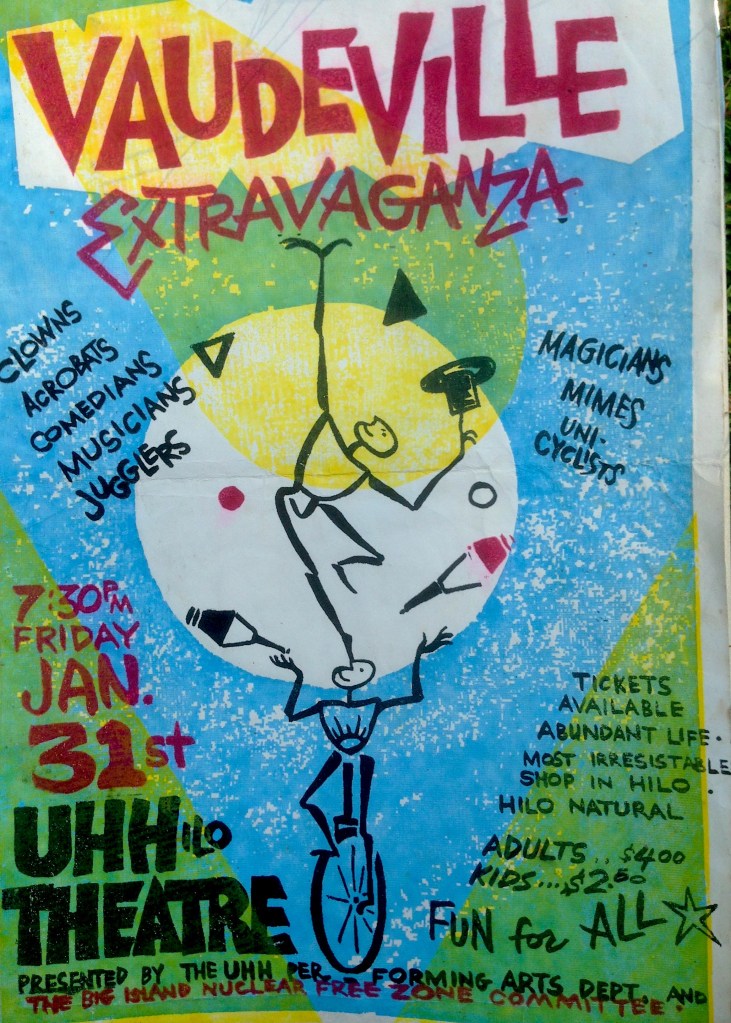 VAUDEVILLE
EXTRAVAGANZA
CLOWNS
ACROBATS
COMEDIANS
MUSICIANS
JUGGLERS
MAGICIANS
MIMES
UNI-
CYCLISTS
7:30PM
FRIDAY
JAN.
31st
UHHILO
THEATRE
TICKETS
AVAILABLE
ABUNDANT LIFE.
MOST IRRESISTABLE
SHOP IN HILO.
HILO NATURAL
ADULTS.. $4.00
KIDS... $2.50
FUN for ALL
PRESENTED BY THE UHH PERFORMING ARTS DEPT. AND
THE BIG ISLAND NUCLEAR FREE ZONE COMMITTEE.